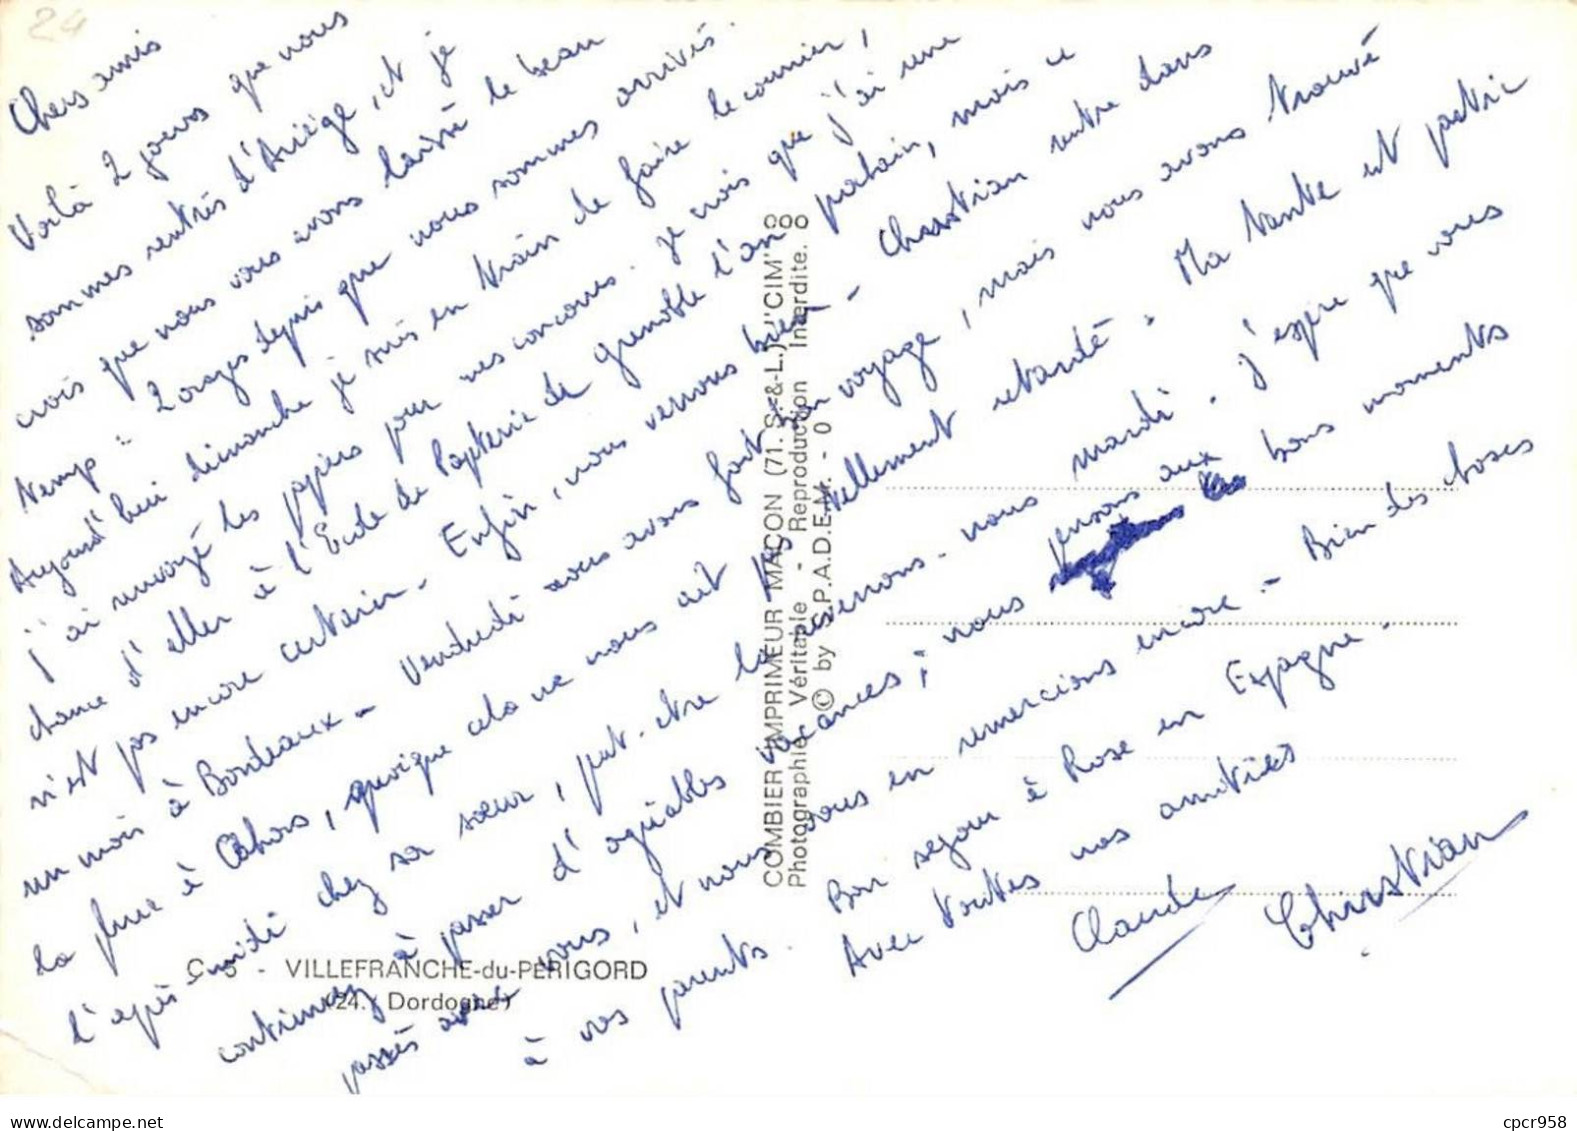 24
Chers amis
Voilà 2 jours que nous
sommes rentrés d'Ariège, et je
crois que nous vous avons laissé le beau
temps = 2 orages depuis que nous sommes arrivés.
Aujourd'hui dimanche je suis en train de faire le courrier,
j'ai envoyé les papiers pour mes concours. Je crois que j'ai une
chance d'aller à l'Ecole de Papeterie de Grenoble l'an prochain, mais ce
n'est pas encore certain - Enfin, nous verrons bien - Christian rentre dans
un mois à Bordeaux - Vendredi nous avons fait bon voyage, mais nous avons trouvé
la pluie à Cahors, quoique cela ne nous ait pas tellement retardé. Ma tante est partie
l'après-midi chez sa soeur, peut-etre la reverrons-nous mardi. J'espère que vous
continuez à passer d'agréables vacances ; nous pensons aux bons moments
passés avec vous, et nous vous en remercions encore - Bien des choses
à vos parents. Bon sejour à Rose en Espagne -
Avec toutes nos amitiés
Claude Christian
COMBIER IMPRIMEUR MACON (71. S.-&-L.) "CIM"
Photographie Véritable - Reproduction Interdite.
© by S.P.A.D.E.M. - 0
- VILLEFRANCHE-du-PÉRIGORD
(24. Dordogne)
www.delcampe.net
cpcr958